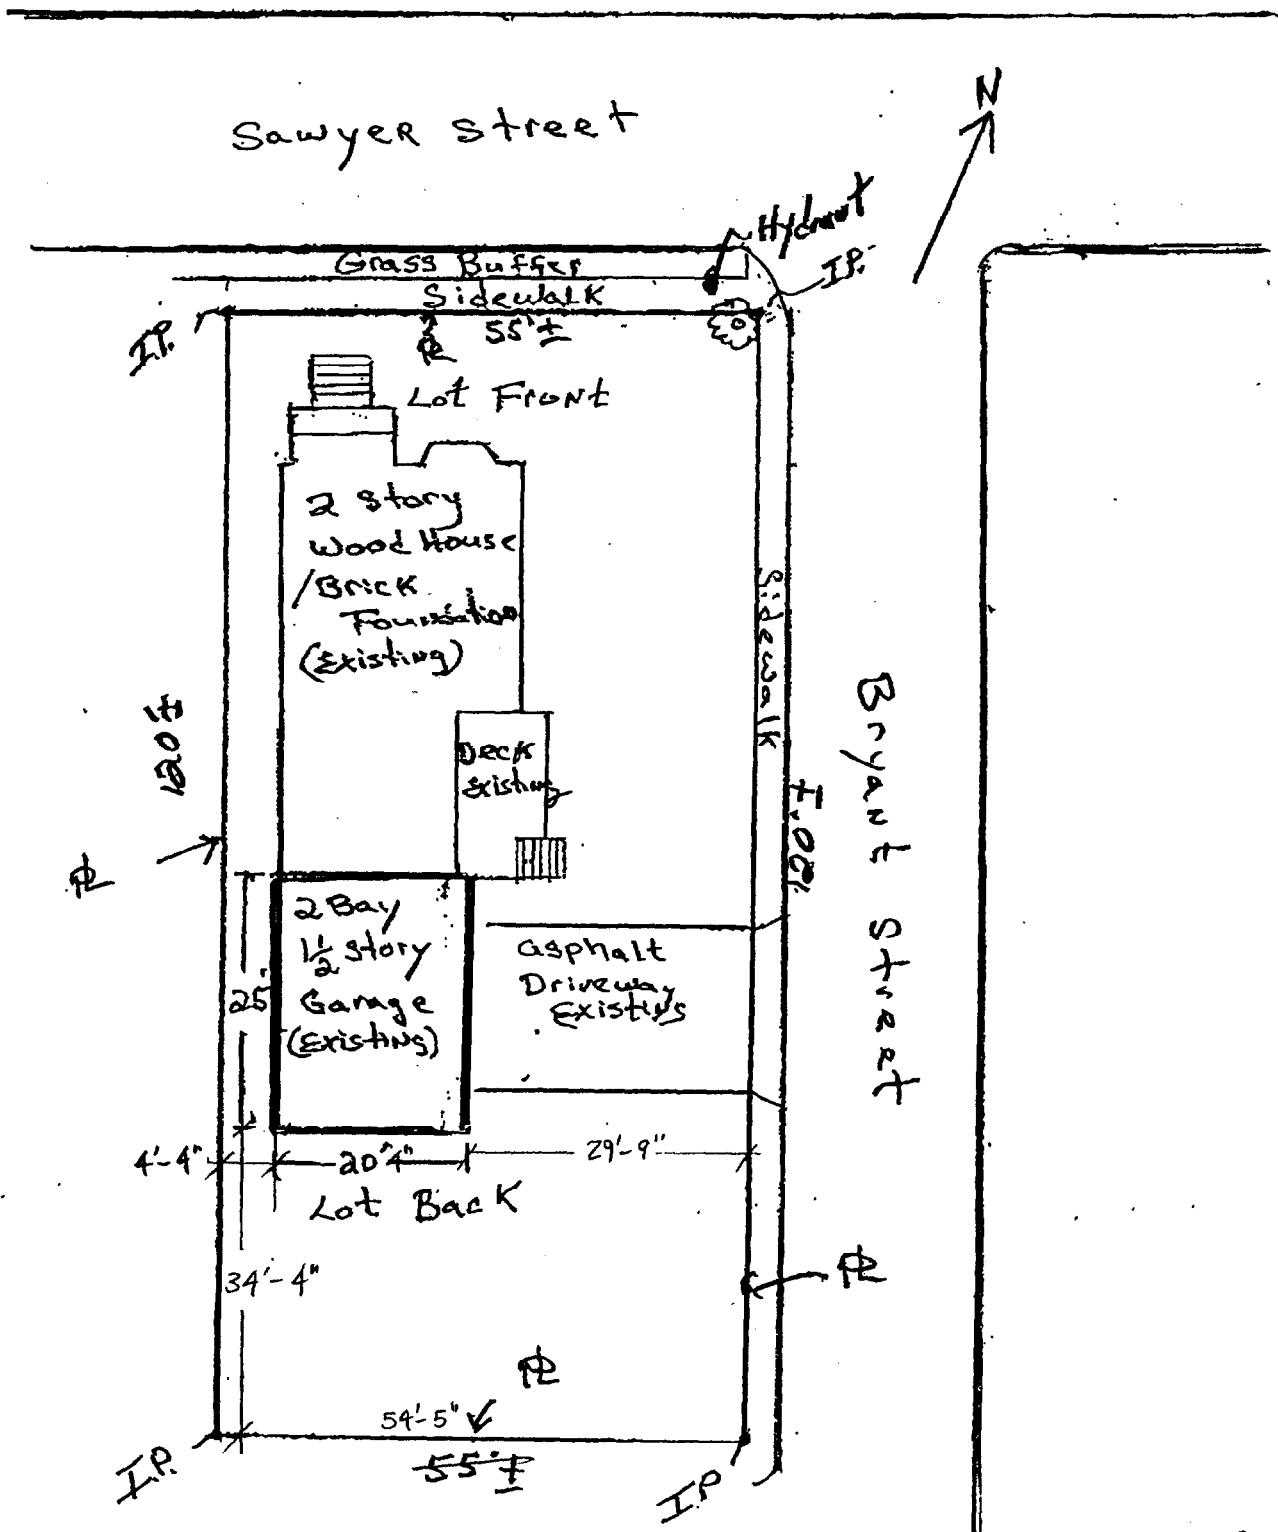 N
Sawyer Street
Hydrant
I.P.
Grass Buffer
Sidewalk
I.P.
55'±
PL
Lot Front
2 Story
Wood House
/Brick
Foundation
(Existing)
Sidewalk
Bryant Street
120'±
120'±
Deck
Existing
PL
2 Bay
1 1/2 Story
Garage
(Existing)
25'
Asphalt
Driveway
Existing
4'-4"
20'4"
29'-9"
Lot Back
34'-4"
PL
PL
54'-5"
55'±
I.P.
I.P